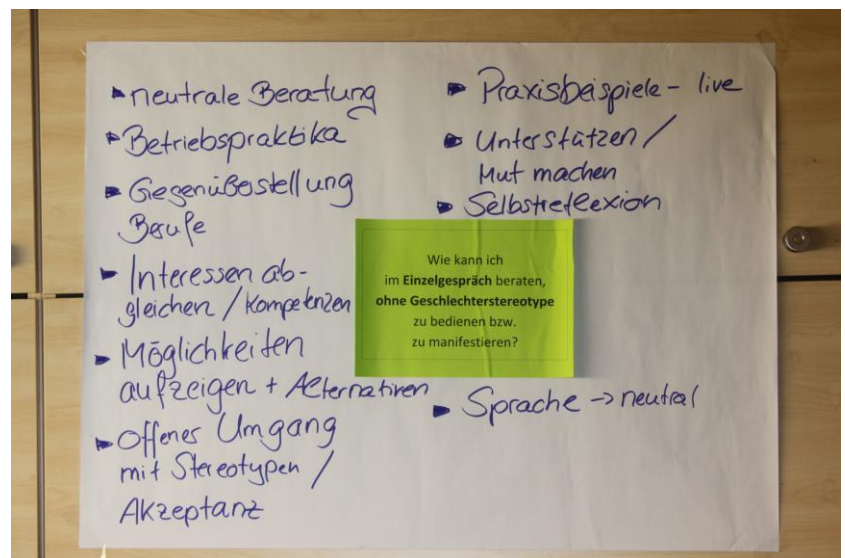 ▸ neutrale Beratung
▸ Betriebspraktika
▸ Gegenüberstellung
Berufe
▸ Interessen ab-
gleichen / Kompetenzen
▸ Möglichkeiten
aufzeigen + Alternativen
▸ Offener Umgang
mit Stereotypen /
Akzeptanz
▸ Praxisbeispiele - live
▸ Unterstützen /
Mut machen
▸ Selbstreflexion
Wie kann ich
im Einzelgespräch beraten,
ohne Geschlechterstereotype
zu bedienen bzw.
zu manifestieren?
▸ Sprache -> neutral